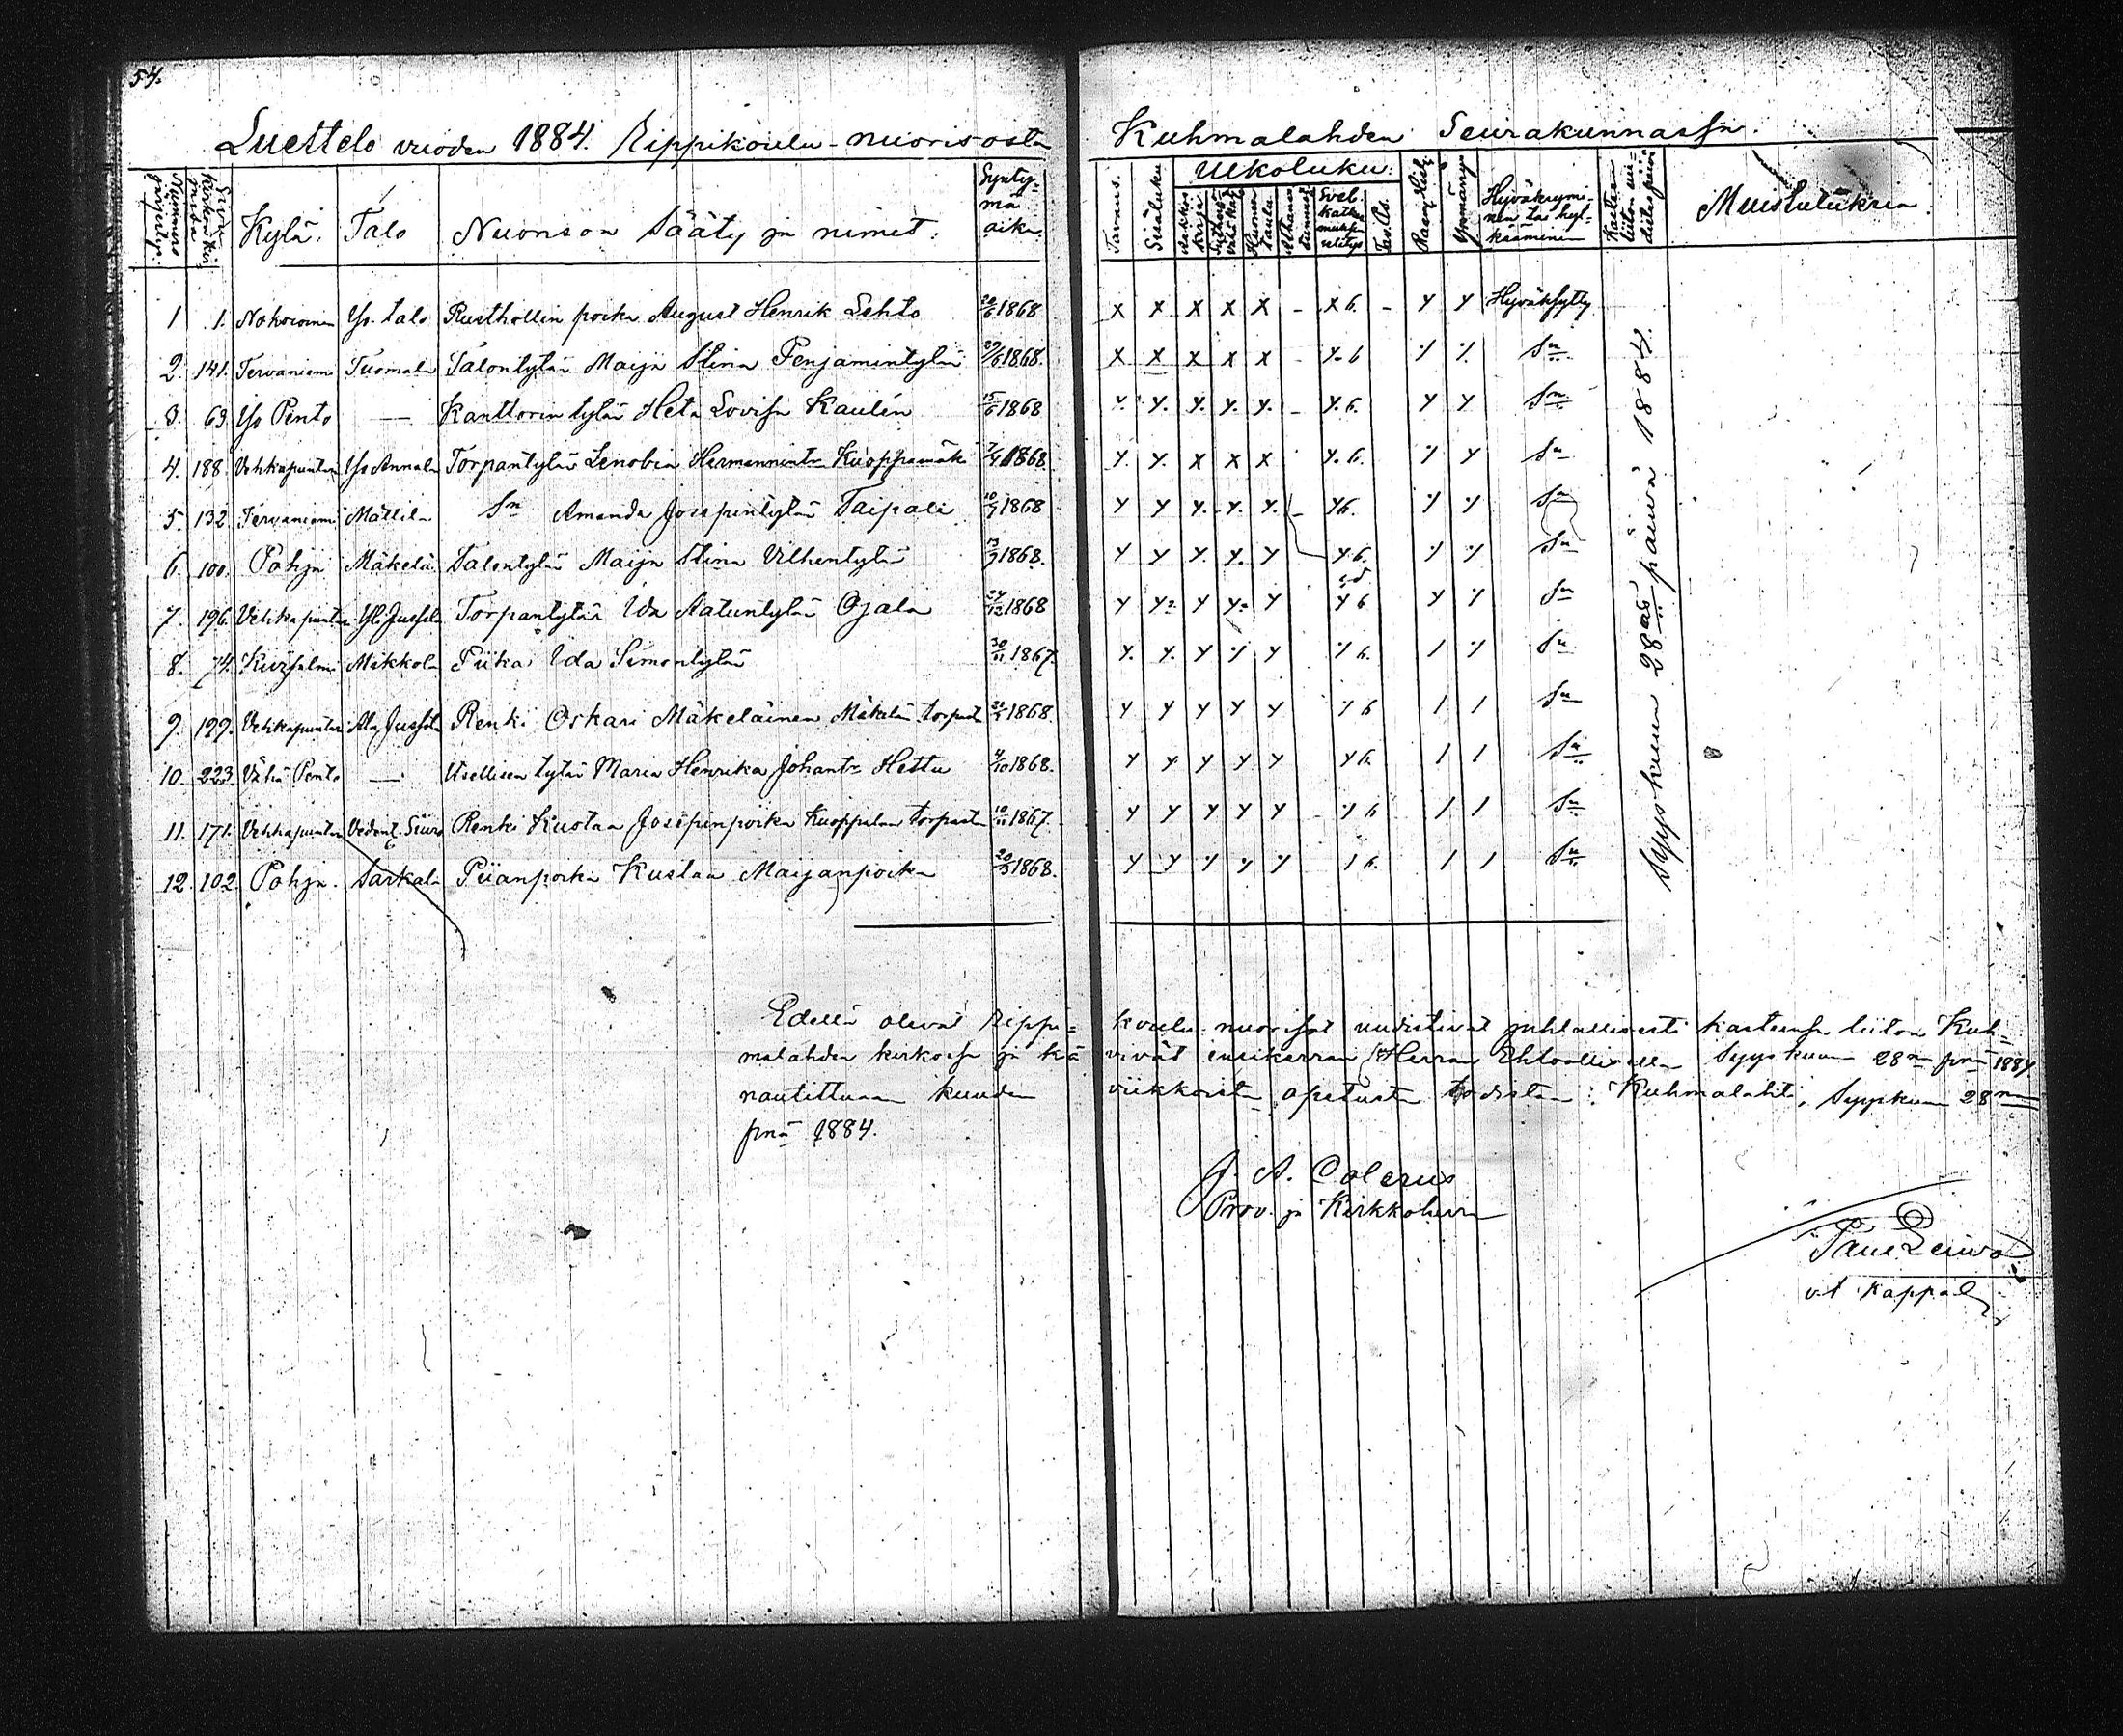 54.
Luettelo vuoden 1884. Rippikoulu-nuorisosta Kuhmalahden Seurakunnassa.
Nummero järjestyss. Sivu Kirkonkirjassa Kylä. Talo Nuorison Sääty ja nimet. Syntymä aika Tavaus. Sisäluku Ulkoluku. Hyväksyminen tas hylkääminen Kasteen liiton uudistuspäivä Muistutuksia.
1 1. Yo. talo Rusthollin poika August Henrik Lehto 20/6 1868 x x x x x - x 6. - y y Hyväksytty
2. 141. Tervaniemi Tuomala Talontytär Maija Stina Penjamintytär 29/6 1868. x x x x x - y. 6 Sn
3. 63. Yo Pento — Kanttorin tytär Heta Lovisa Kaulin 15/6 1868 y. y. y. y. y. - y. 6. y y Sn
4. 188. Vehkapuntari Yo Annala Torpantytär Senobia Hermannintr Kuoppamäki 7/4 1868 y. y. x x x y. 6. y Sn
5 132 Tervaniemi Mattila Sn Amanda Josepintytär Taipale 10/9 1868 y y y. y. y. - y 6. Sn
6. 100. Pohja Mäkelä Talontytär Maija Stina Vilhentytär 13/9 1868. y y y. y. y y 6. Sn
7. 196. Vehkapuntari Yli Jussila Torpantytär Ida Aatuntytär Ojala 24/12 1868 y y y y 6 y Sn
8. 74. Kuusalmi Mikkola Piika Ida Simontytär 30/11 1867. y. y. y y 6. Sn
9. 199. Vehkapuntari Ala Jussila Renki Oskari Mäkeläinen Mäkelän torpast 1868. y y y y y 6 / / Sn
10. 223. Vähä Pento — Itsellisen tytär Maria Henrika Johantr Hettu 4/10 1868. y y y y y y 6. / / Sn
11. 171. Vehkapuntari Vedent. Siuro Renki Kustaa Josepinpoika Kuoppalan torpasta 10/11 1867. y y y y y 6 / / Sn
12. 102. Pohja. Sarkala Piianpoika Kustaa Maijanpoika 20/3 1868. y y y y y 6. / / Sn
Syyskuun 28as päivä 1884.
Edellä olevat Rippikoulu-nuorisot uudistivat juhlallisesti kasteensa liiton Kuh-
malahden kirkossa ja kävivät ensikerran Herran Ehtoollisella Syyskuun 28na pnä 1884
nautittuaan kuuden viikkoista opetusta todistaa: Kuhmalahti, Syyskuun 28na
pnä 1884.
J. A. Colerus
Prov. ja Kirkkoherra
v.t Kappal